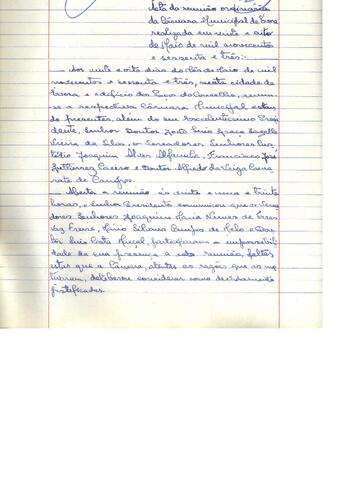 Acta da reunião ordinária
da Câmara Municipal de Évora
realizada em vinte e oito
de Maio de mil novecentos
e sessenta e três:-
Aos vinte e oito dias do mês de Maio de mil
novecentos e sessenta e três, nesta cidade de
Évora e edifício dos Paços do Concelho, reuniu-
se a respectiva Câmara Municipal estan
do presentes, além do seu Excelentíssimo Presi
dente, Senhor Doutor João Luís
Vieira da Silva, os Vereadores Senhores Cus
tódio Joaquim Alves Francisco José
Caeiro e Doutor Alfredo da Veiga
de Campos.
Aberta a reunião às vinte e uma e trinta
horas, o Senhor Presidente comunicou que os Verea
dores Senhores Joaquim Maria Nunes de
Vaz Freire, Mário de Melo e Dou
tor Luís Costa participaram a impossibili
dade da sua presença a esta reunião, faltas
estas que a Câmara, atentas as razões que as mo
tivaram, deliberou considerar como devidamente
justificadas.